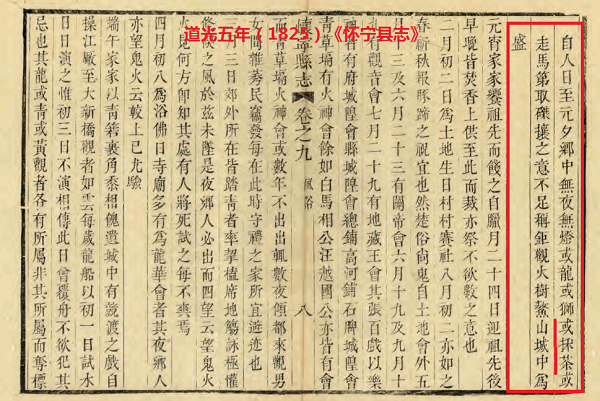 道光五年（1825）《怀宁县志》
自人日至元夕鄉中無夜無燈或龍或獅或採茶或
走馬第取磔攘之意不足稱鉅觀火樹鰲山城中爲
盛
元宵家家饗祖先而餕之自臘月二十四日迎祖先後
早晚皆焚香上供至此而裁亦祭不欲數之意也
二月初二日爲土地生日村村賽社八月初二亦如之
春祈秋報豚蹄之祝宜也然楚俗尚鬼自土地會外五
月十三及六月二十三有關帝會六月十九及九月十
九有觀音會七月二十九有地藏王會其張百戲以樂
神者城有府城隍會縣城隍會總鋪高河鋪石牌城隍會
青草塥有火神會餘如白馬相公汪越國公亦皆有會
懷寧縣志 卷之九 風俗 八
而青草塥火神會或數年不出出輒數夜傾都來觀男
女間雜莠民竊發每在此時守禮之家所宜迹也
三月三日郊外所在皆踏青者率挈榼席地觴詠極懽
修禊之風於茲未墜是夜鄉人必出而四望云望鬼火
火見何方卽知其處有人將死試之每不爽焉
四月初八爲浴佛日寺廟多有爲龍華會者其夜鄉人
亦望鬼火云較上巳尤驗
端午家家以青箬裹角黍相餽遺城中有競渡之戲自
操江廠至大新橋觀者如雲每歲龍船以初一日試水
日日演之惟初三日不演相傳此日曾覆舟不欲犯其
忌也其龍或青或黃觀者各有所屬非其所屬而奪標